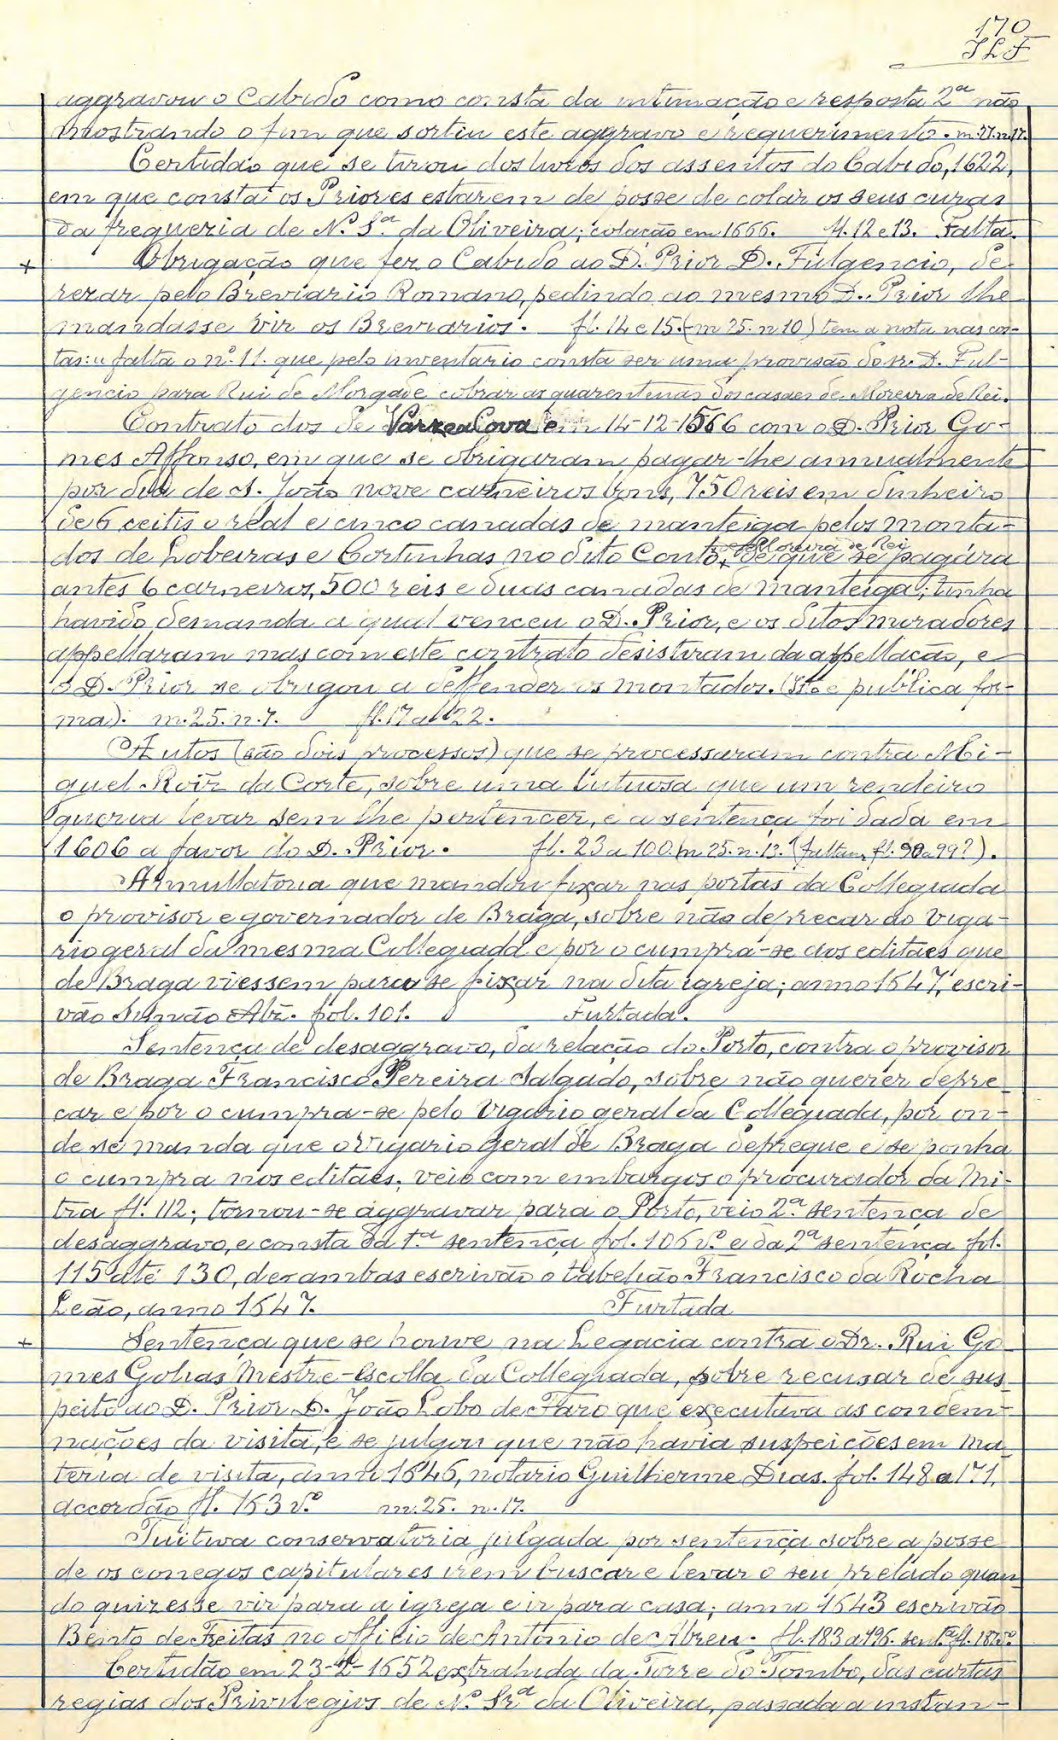 170
JLF
aggravou o Cabido como consta da intimação e resposta 2ª não
mostrando o fim que sortiu este aggravo e requerimento. m.27.n.17.
Certidão que se tirou dos livros dos assentos do Cabido, 1622,
em que consta os Priores estarem de posse de colar os seus curas
da freguezia de N.ª S.ª da Oliveira; colação em 1666. fl. 12 e 13. Falta.
+ Obrigação que fez o Cabido ao D. Prior D. Fulgencio, de
rezar pelo Breviario Romano, pedindo ao mesmo D. Prior lhe
mandasse vir os Breviarios. fl. 14 e 15. (m 25. n 10) tem a nota nas cos-
tas: "falta o nº 11. que pelo inventario consta ser uma provisão do sr. D. Ful-
gencio para Rui de Morgade cobrar as quarentenas dos casaes de Moreira de Rei.
Contrato dos de Varzea Cova em 14-12-1566 com o D. Prior Go-
mes Affonso, em que se obrigaram pagar-lhe annualmente
por dia de S. João nove carneiros bons, 750 reis em dinheiro
de 6 ceitis o real e cinco canadas de manteiga pelos monta-
dos de Lobeiras e Cortinhas no dito Couto, de Moreira de Rei
de que se pagára
antes 6 carneiros, 500 reis e duas canadas de manteiga; tinha
havido demanda a qual venceu o D. Prior, e os ditos moradores
appellaram mas com este contrato desistiram da appellação, e
o D. Prior se obrigou a deffender os montados. (Is e publica for-
ma). m. 25. n. 7. fl. 17 a 22.
Autos (são dois processos) que se processaram contra Mi-
guel Roiz da Corte, sobre uma luctuosa que um rendeiro
queria levar sem lhe pertencer, e a sentença foi dada em
1606 a favor do D. Prior. fl. 23 a 100. m 25. n. 13. (faltam fl. 90 a 99?).
Annullatoria que mandou fixar nas portas da Collegiada
o provisor e governador de Braga, sobre não deprecar ao viga-
rio geral da mesma Collegiada e por o cumpra-se aos editaes que
de Braga viessem para se fixar na dita igreja; anno 1647, escri-
vão Simão Abz. fol. 101. Furtada.
Sentença de desaggravo, da relação do Porto, contra o provisor
de Braga Francisco Pereira Salgado, sobre não querer depre
car e por o cumpra-se pelo vigario geral da Collegiada, por on-
de se manda que o vigario geral de Braga depreque e se ponha
o cumpra nos editaes; veio com embargos o procurador da Mi-
tra fl. 112; tornou-se aggravar para o Porto, veio 2.ª sentença de
desaggravo, e consta da 1.ª sentença fol. 106 vº e da 2ª sentença fol.
115 até 130, de ambas escrivão o tabelião Francisco da Rocha
Leão, anno 1647. Furtada
+ Sentença que se houve na Legacia contra o Dr. Rui Go-
mes Golias Mestre-escolla da Collegiada, sobre recusar de sus-
peito ao D. Prior D. João Lobo de Faro que executava as condem-
nações da visita, e se julgou que não havia suspeições em ma-
teria de visita, anno 1646, notario Guilherme Dias. fol. 148 a 171,
accordão fl. 163 vº m. 25. n. 17.
Tuitiva conservatoria julgada por sentença sobre a posse
de os conegos capitulares irem buscar e levar o seu prelado quan-
do quizesse vir para a igreja e ir para casa; anno 1643 escrivão
Bento de Freitas no officio de Antonio de Abreu. fl. 183 a 196. sent.ª fl. 187 vº
Certidão em 23-2-1652 extrahida da Torre do Tombo, das cartas
regias dos Privilegios de N.ª Srª da Oliveira, passada a instan-